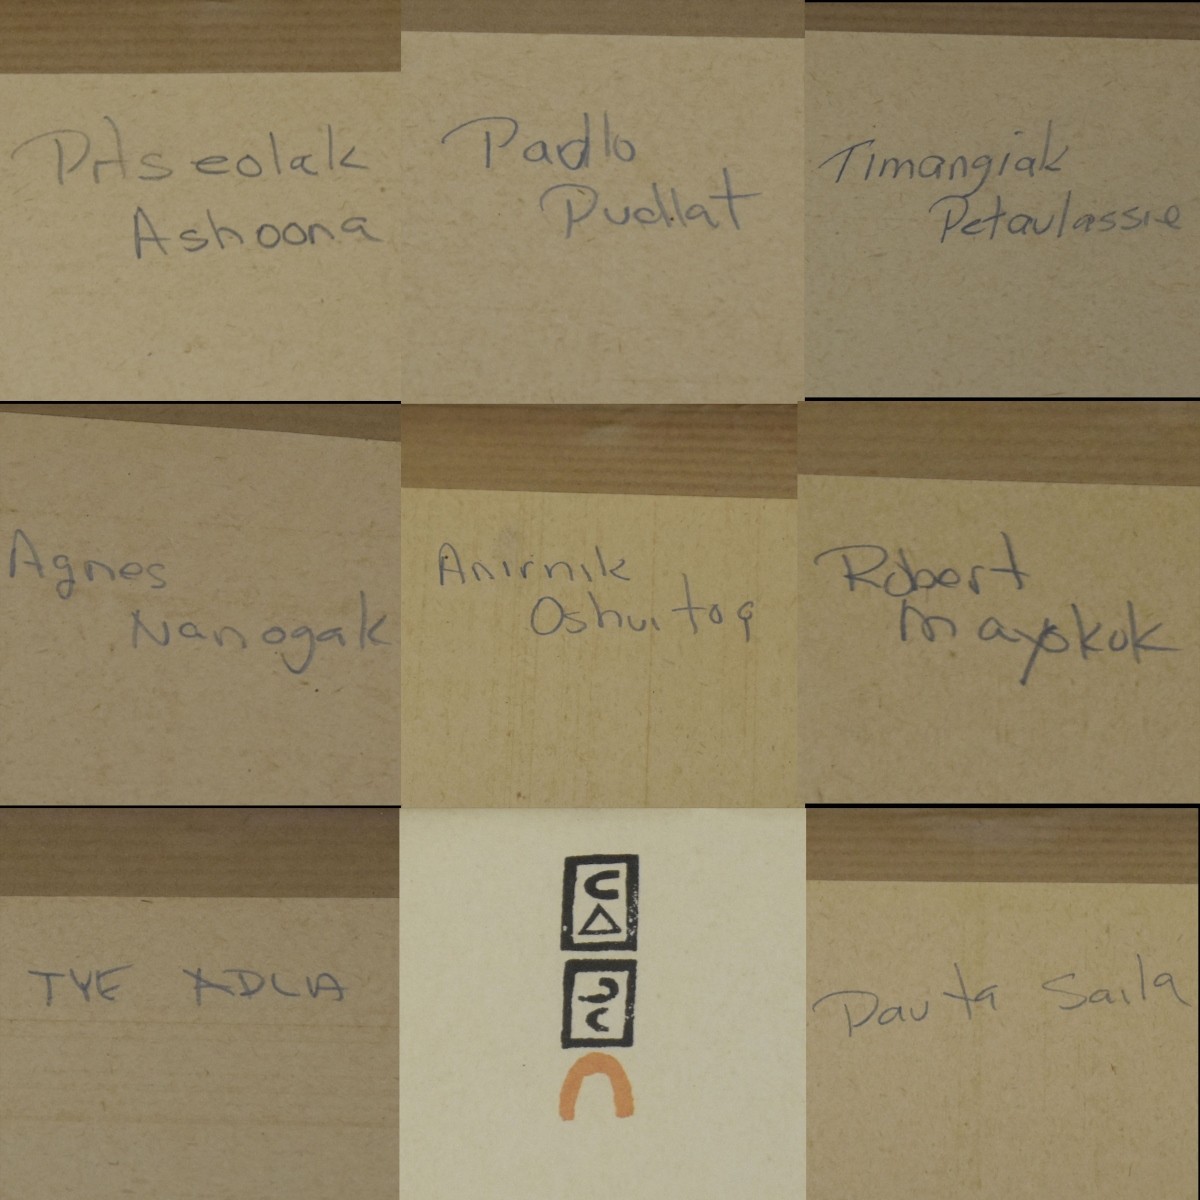 Pitseolak
Ashoona
Padlo
Pudlat
Timangiak
Petaulassie
Agnes
Nanogak
Anirnik
Oshuitoq
Robert
Mayokok
TYE ADLA
Pauta Saila